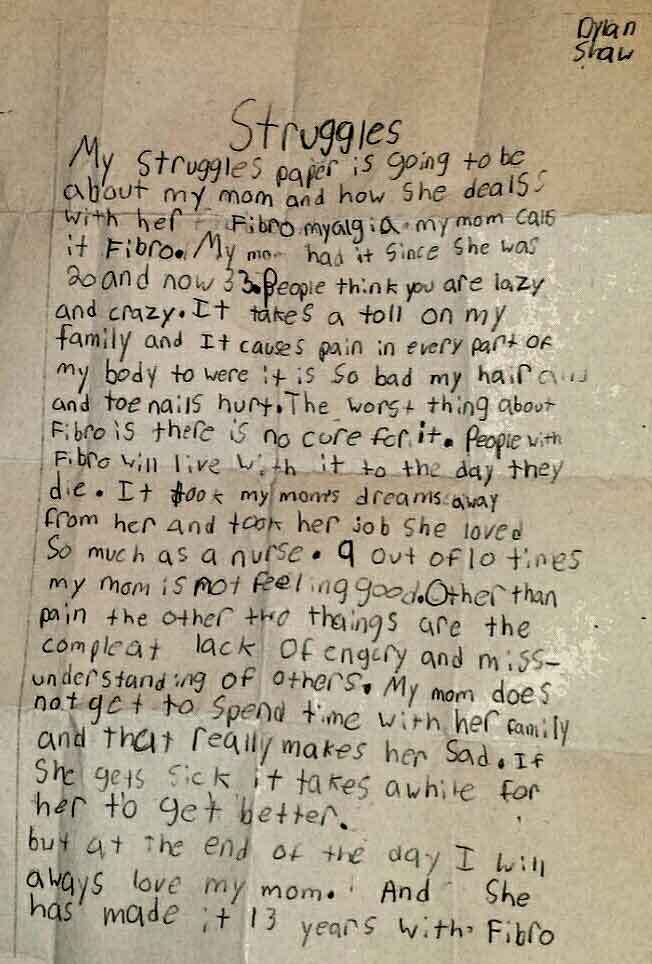 Dylan
Shaw
Struggles
My struggles paper is going to be
about my mom and how she dealss
with her Fibromyalgia. my mom calls
it Fibro. My mom had it since she was
20 and now 33. People think you are lazy
and crazy. It takes a toll on my
family and It causes pain in every part of
my body to were it is so bad my hair
and toenails hurt. The worst thing about
Fibro is there is no cure for it. People with
Fibro will live with it to the day they
die. It took my moms dreams away
from her and took her job she loved
so much as a nurse. 9 out of 10 times
my mom is not feeling good. Other than
pain the other two thaings are the
compleat lack of engery and miss-
understanding of others. My mom does
not get to spend time with her family
and that really makes her sad. If
she gets sick it takes awhile for
her to get better.
but at the end of the day I will
aways love my mom. And She
has made it 13 years with Fibro